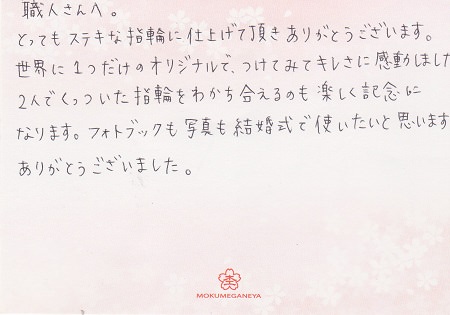 職人さんへ。
とってもステキな指輪に仕上げて頂きありがとうございます。
世界に1つだけのオリジナルで、つけてみてキレさに感動しました
2人でくっついた指輪をわかち合えるのも楽しく記念に
なります。フォトブックも写真も結婚式で使いたいと思います
ありがとうございました。
MOKUMEGANEYA